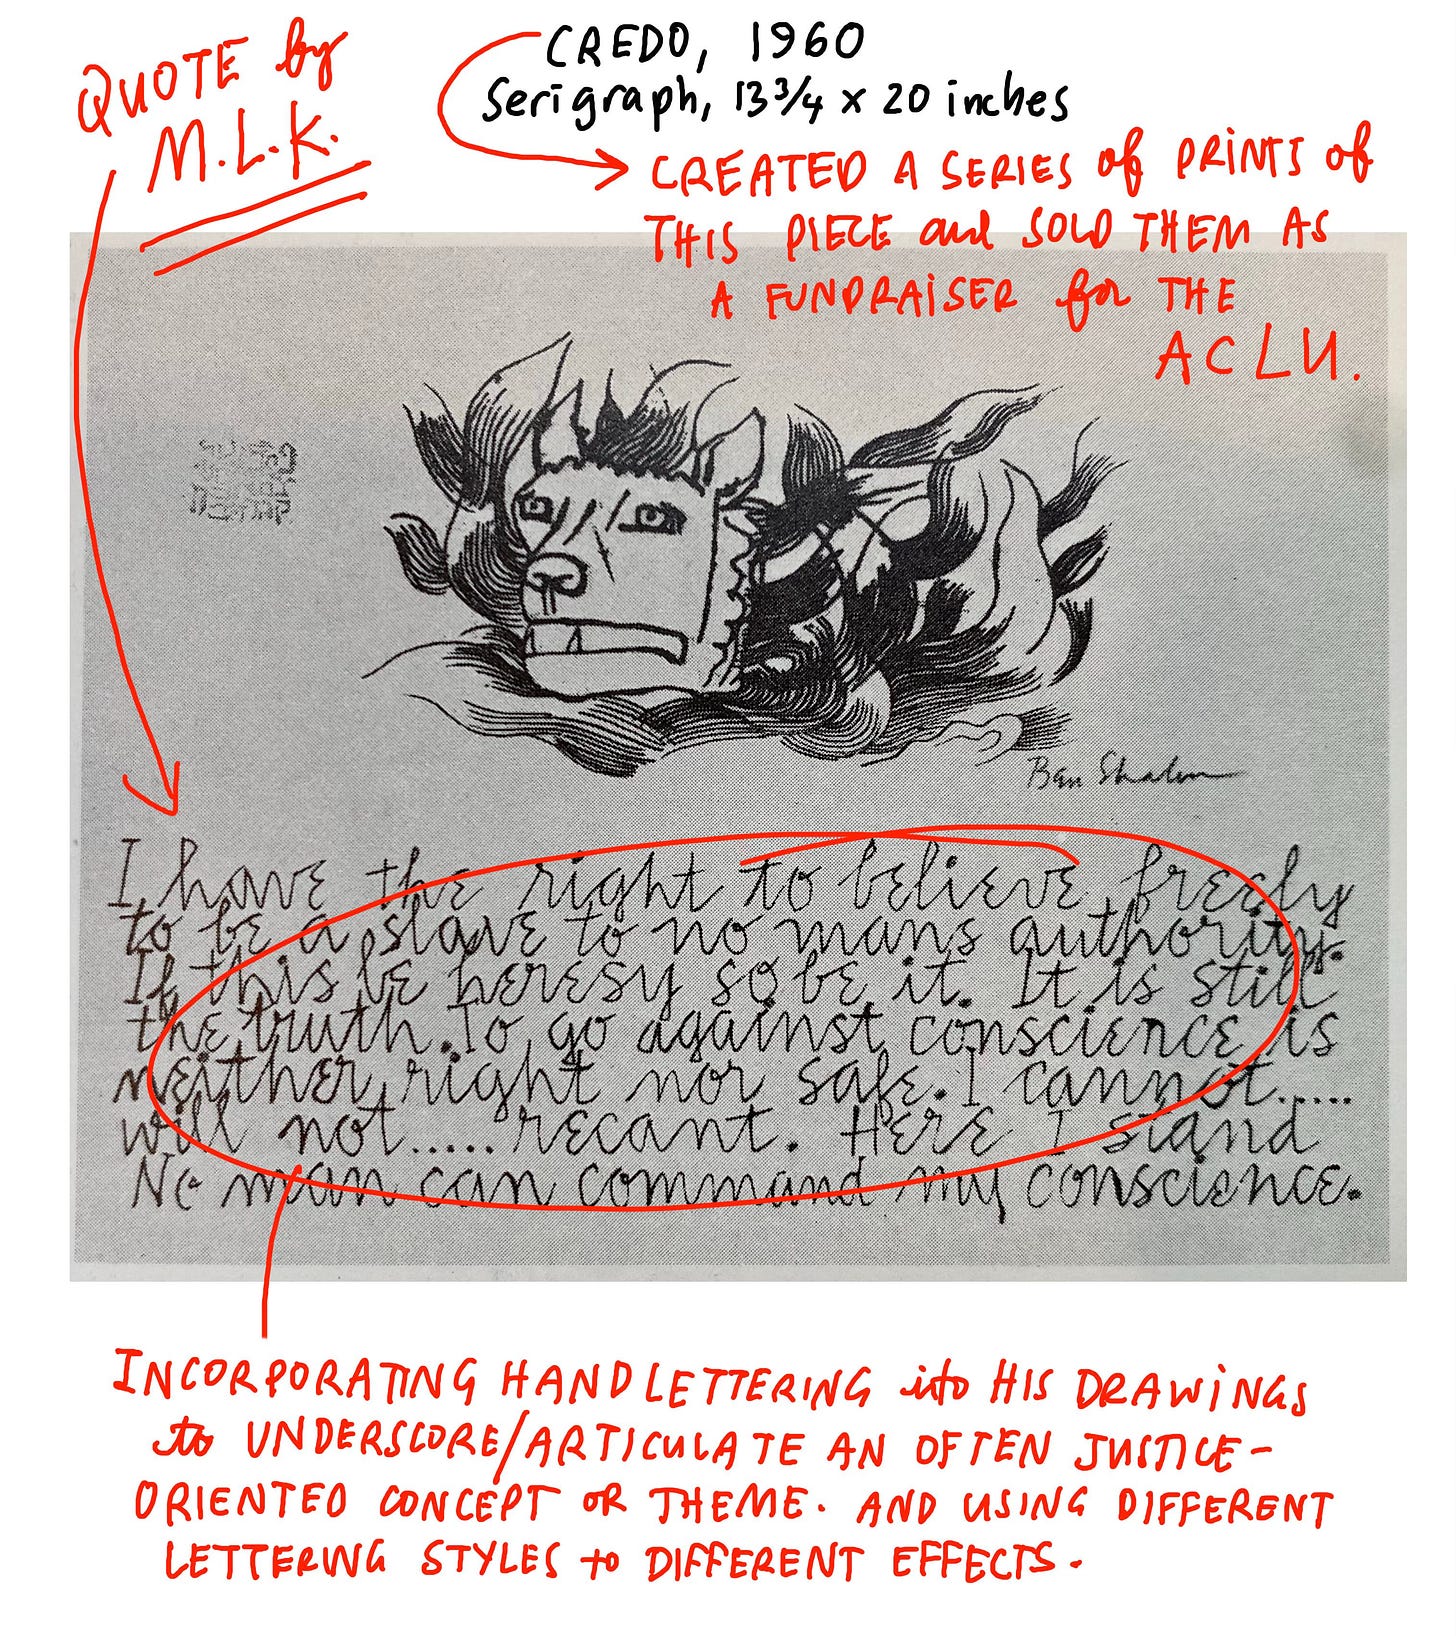 QUOTE by
M.L.K.
CREDO, 1960
Serigraph, 13 3/4 x 20 inches
CREATED A SERIES of PRINTS of
THIS PIECE and SOLD THEM AS
A FUNDRAISER for THE
ACLU.
Ben Shahn
I have the right to believe freely
to be a slave to no mans authority.
If this be heresy so be it. It is still
the truth. To go against conscience is
neither right nor safe. I cannot.....
will not.....recant. Here I stand
No man can command my conscience.
INCORPORATING HAND LETTERING into HIS DRAWINGS
to UNDERSCORE/ARTICULATE AN OFTEN JUSTICE-
ORIENTED CONCEPT OR THEME. AND USING DIFFERENT
LETTERING STYLES to DIFFERENT EFFECTS.